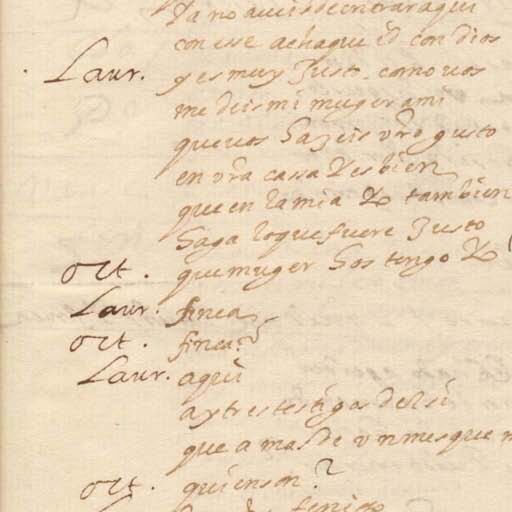 ya no aueis de entrar aqui
con esse achaque id con dios
Laur. y es muy Justo. como uos
me deis mi muger a mi
que uos hazeis vro gusto
en vra cassa Y es bien
que en la mia Yo tambien
haga lo que fuere Justo
Ott. que muger hos tengo Yo
Laur. finea
Ott. finea?
Laur. aqui
ay tres testigos del si
que a mas de vn mes que
Ott. quien son?